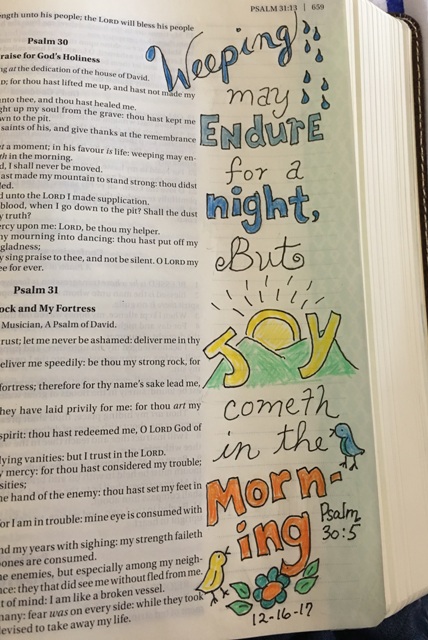 PSALM 31:13 | 659
ength unto his people; the LORD will bless his people
Psalm 30
raise for God's Holiness
ng at the dedication of the house of David.
D; for thou hast lifted me up, and hast not made my
unto thee, and thou hast healed me.
ght up my soul from the grave: thou hast kept me
wn to the pit.
saints of his, and give thanks at the remembrance
t a moment; in his favour is life: weeping may en-
th in the morning.
d, I shall never be moved.
ast made my mountain to stand strong: thou didst
led.
d unto the LORD I made supplication.
blood, when I go down to the pit? Shall the dust
y truth?
ercy upon me: LORD, be thou my helper.
my mourning into dancing: thou hast put off my
gladness;
y sing praise to thee, and not be silent. O LORD my
ee for ever.
Psalm 31
ock and My Fortress
Musician, A Psalm of David.
rust; let me never be ashamed: deliver me in thy
eliver me speedily: be thou my strong rock, for
fortress; therefore for thy name's sake lead me,
hey have laid privily for me: for thou art my
spirit: thou hast redeemed me, O LORD God of
lying vanities: but I trust in the LORD.
y mercy: for thou hast considered my trouble;
sities;
he hand of the enemy: thou hast set my feet in
or I am in trouble: mine eye is consumed with
nd my years with sighing: my strength faileth
ones are consumed.
e enemies, but especially among my neigh-
nce: they that did see me without fled from me.
t of mind: I am like a broken vessel.
many: fear was on every side: while they took
devised to take away my life.
Weeping
may
ENDURE
for a
night,
But
JOY
cometh
in the
Morn-
ing
Psalm
30:5
12-16-17